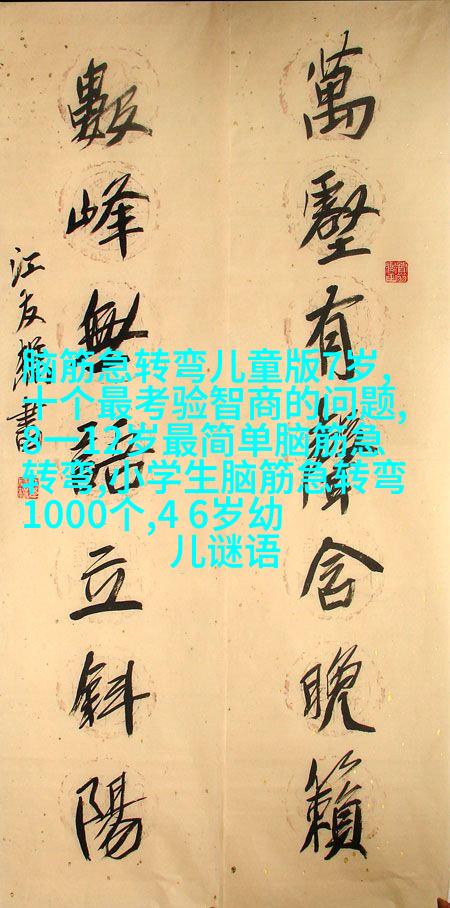 萬壑有聲含晚籟
數峰無語立斜陽
江友樵書
脑筋急转弯儿童版7岁,
十个最考验智商的问题,
8一12岁最简单脑筋急
转弯,小学生脑筋急转弯
1000个,4 6岁幼
儿谜语